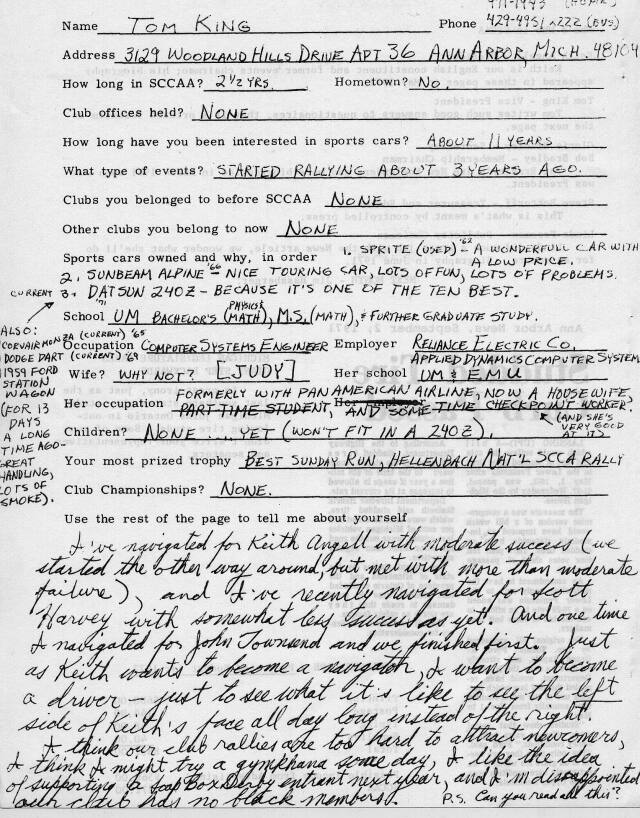 971-1943 (HOME)
Name TOM KING Phone 429-4951 x222 (BUS)
Address 3129 WOODLAND HILLS DRIVE APT 36 ANN ARBOR, MICH. 48104
How long in SCCAA? 2 1/2 YRS. Hometown? NO.
Club offices held? NONE
How long have you been interested in sports cars? ABOUT 11 YEARS
What type of events? STARTED RALLYING ABOUT 3 YEARS AGO.
Clubs you belonged to before SCCAA NONE
Other clubs you belong to now NONE
Sports cars owned and why, in order 1. SPRITE (USED) '62 - A WONDERFULL CAR WITH A LOW PRICE.
2. SUNBEAM ALPINE '66 - NICE TOURING CAR, LOTS OF FUN, LOTS OF PROBLEMS.
CURRENT → 3. DATSUN 240Z '71 - BECAUSE IT'S ONE OF THE TEN BEST.
School UM BACHELOR'S (MATH, PHYSICS), M.S. (MATH), & FURTHER GRADUATE STUDY.
Occupation COMPUTER SYSTEMS ENGINEER Employer RELIANCE ELECTRIC CO.
APPLIED DYNAMICS COMPUTER SYSTEMS
Wife? WHY NOT? [JUDY] Her school UM & EMU
Her occupation FORMERLY WITH PAN AMERICAN AIRLINE, NOW A HOUSEWIFE,
PART-TIME STUDENT, AND SOME-TIME CHECKPOINT WORKER.
(AND SHE'S VERY GOOD AT IT)
Children? NONE ... YET (WON'T FIT IN A 240Z).
Your most prized trophy BEST SUNDAY RUN, HELLENBACH NAT'L SCCA RALLY
Club Championships? NONE.
ALSO:
CORVAIR MONZA (CURRENT) '65
DODGE DART (CURRENT) '69
1959 FORD
STATION
WAGON
(FOR 13
DAYS
A LONG
TIME AGO-
GREAT
HANDLING,
LOTS OF
SMOKE).
Use the rest of the page to tell me about yourself
I've navigated for Keith Angell with moderate success (we
started the other way around, but met with more than moderate
failure), and I've recently navigated for Scott
Harvey with somewhat less success as yet. And one time
I navigated for John Townsend and we finished first. Just
as Keith wants to become a navigator, I want to become
a driver - just to see what it's like to see the left
side of Keith's face all day long instead of the right.
I think our club rallies are too hard to attract newcomers,
I think I might try a gymkhana some day, I like the idea
of supporting a Soap Box Derby entrant next year, and I'm disappointed
our club has no black members. P.S. Can you read all this?